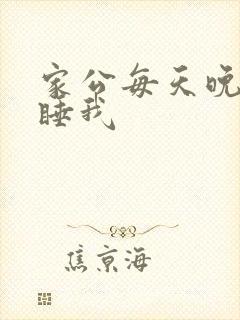 家公每天晚
睡我
焦京海